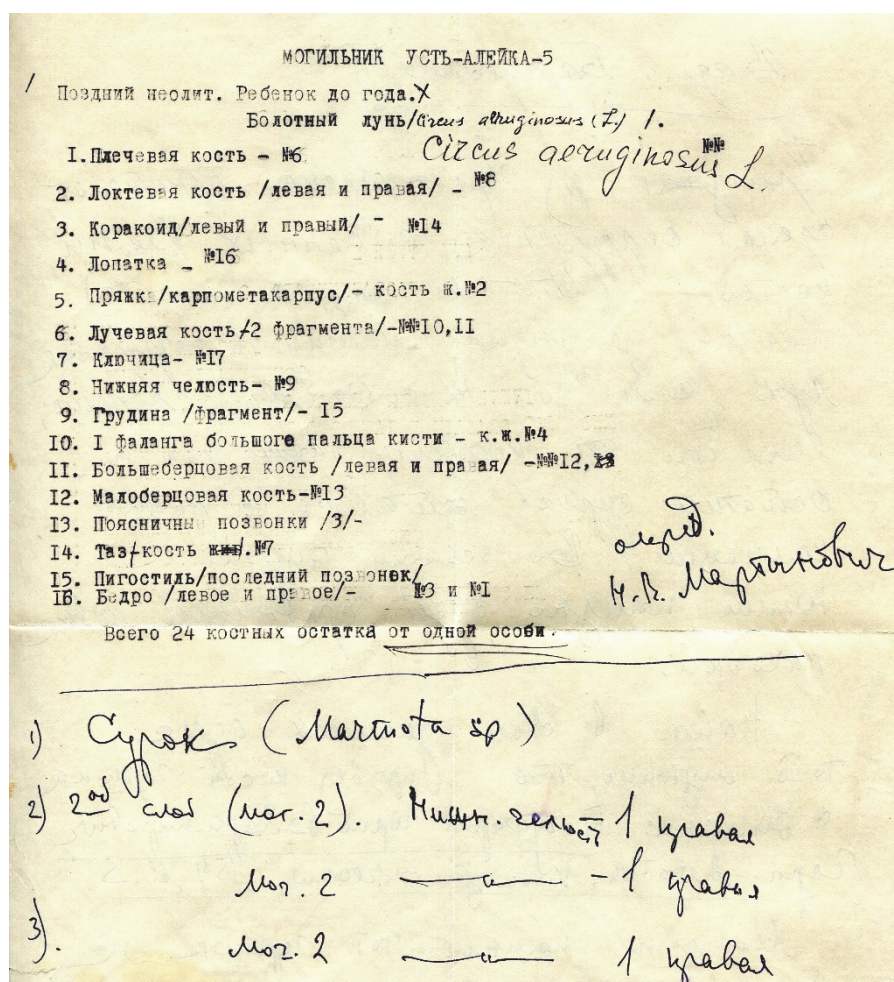 МОГИЛЬНИК УСТЬ-АЛЕЙКА-5
Поздний неолит. Ребенок до года.X
Болотный лунь/Circus aeruginosus (L) 1.
Circus aeruginosus L.
№№
1.Плечевая кость – №6
2. Локтевая кость /левая и правая/ – №8
3. Коракоид/левый и правый/ – №14
4. Лопатка – №16
5. Пряжка/карпометакарпус/- кость ж.№2
6. Лучевая кость/-2 фрагмента/-№№10,11
7. Ключица- №17
8. Нижняя челюсть- №9
9. Грудина /фрагмент/- 15
10. I фаланга большого пальца кисти – к.ж.№4
11. Большеберцовая кость /левая и правая/ -№№12,13
12. Малоберцовая кость-№13
13. Поясничные позвонки /3/-
14. Таз/-кость жив/.№7
15. Пигостиль/последний позвонек/
16. Бедро /левое и правое/- №3 и №1
опред.
Н.В. Мартынович
Всего 24 костных остатка от одной особи.
1) Сурок (Marmota sp)
2) 2ой слой (мог. 2). Нижн. челюсть 1 правая
Мог. 2 —〃— – 1 правая
3). Мог. 2 —〃— 1 правая